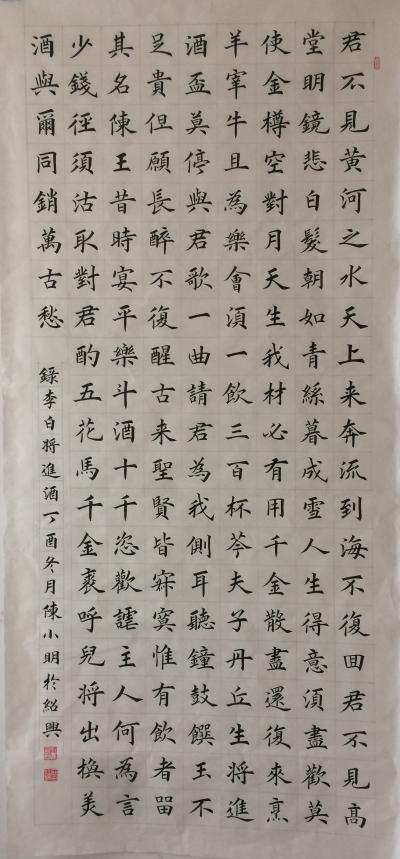 君不見黃河之水天上来奔流到海不復囬君不見高
堂明鏡悲白髮朝如青絲暮成雪人生得意須盡歡莫
使金樽空對月天生我材必有用千金散盡還復來烹
羊宰牛且為樂會須一飲三百杯芩夫子丹丘生將進
酒盃莫停與君歌一曲請君為我側耳聽鐘鼓饌玉不
足貴但願長醉不復醒古来聖賢皆寂寞惟有飲者留
其名陳王昔時宴平樂斗酒十千恣歡謔主人何為言
少錢徑須沽取對君酌五花馬千金裘呼兒将出換美
酒與爾同銷萬古愁
錄李白将進酒丁酉冬月陳小明於紹興